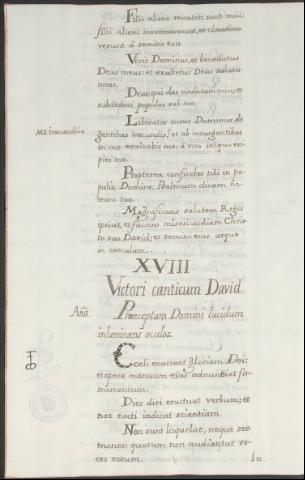 Filii alieni mentiti sunt mihi:
filii alieni inveteraverunt, et claudica-
verunt à semitis tuis.
Vivit Dominus, et benedictus
Deus meus: et exaltetur Deus salutis
meae.
Deus, qui das vindictam mihi, et
subdidisti populos sub me.
Liberator meus Dominus de
gentibus iracundis, et ab insurgentibus
in me exaltabis me: à viro iniquo eri-
pies me.
Ms iracundiis
Propterea confitebor tibi in po-
pulis, Domine. Psalmum dicam no-
mini tuo.
Magnificans salutem Regis
ipsius, et faciens misericordiam Chris-
to suo David; et semini eius usque
in saeculum.
XVIII
Victori canticum David.
Añã
Praeceptum Domini lucidum
inluminans oculos.
Coeli enarrant gloriam Dei;
et opera manuum eius adnuntiat fir-
mamentum.
Dies diei eructuat verbum; et
nox nocti indicat scientiam.
Non sunt loquelae, neque ser-
mones: quorum non audiantur vo-
ces eorum.
In